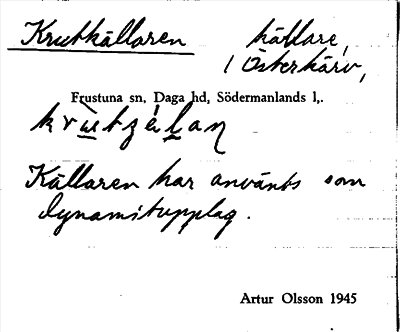 Krutkällaren källare,
i Österkärv,
Frustuna sn, Daga hd, Södermanlands l,.
Källaren har använts som
dynamitupplag.
Artur Olsson 1945